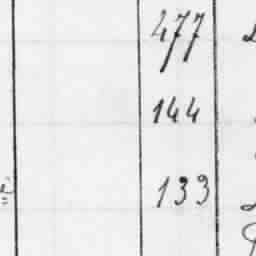 477
144
133